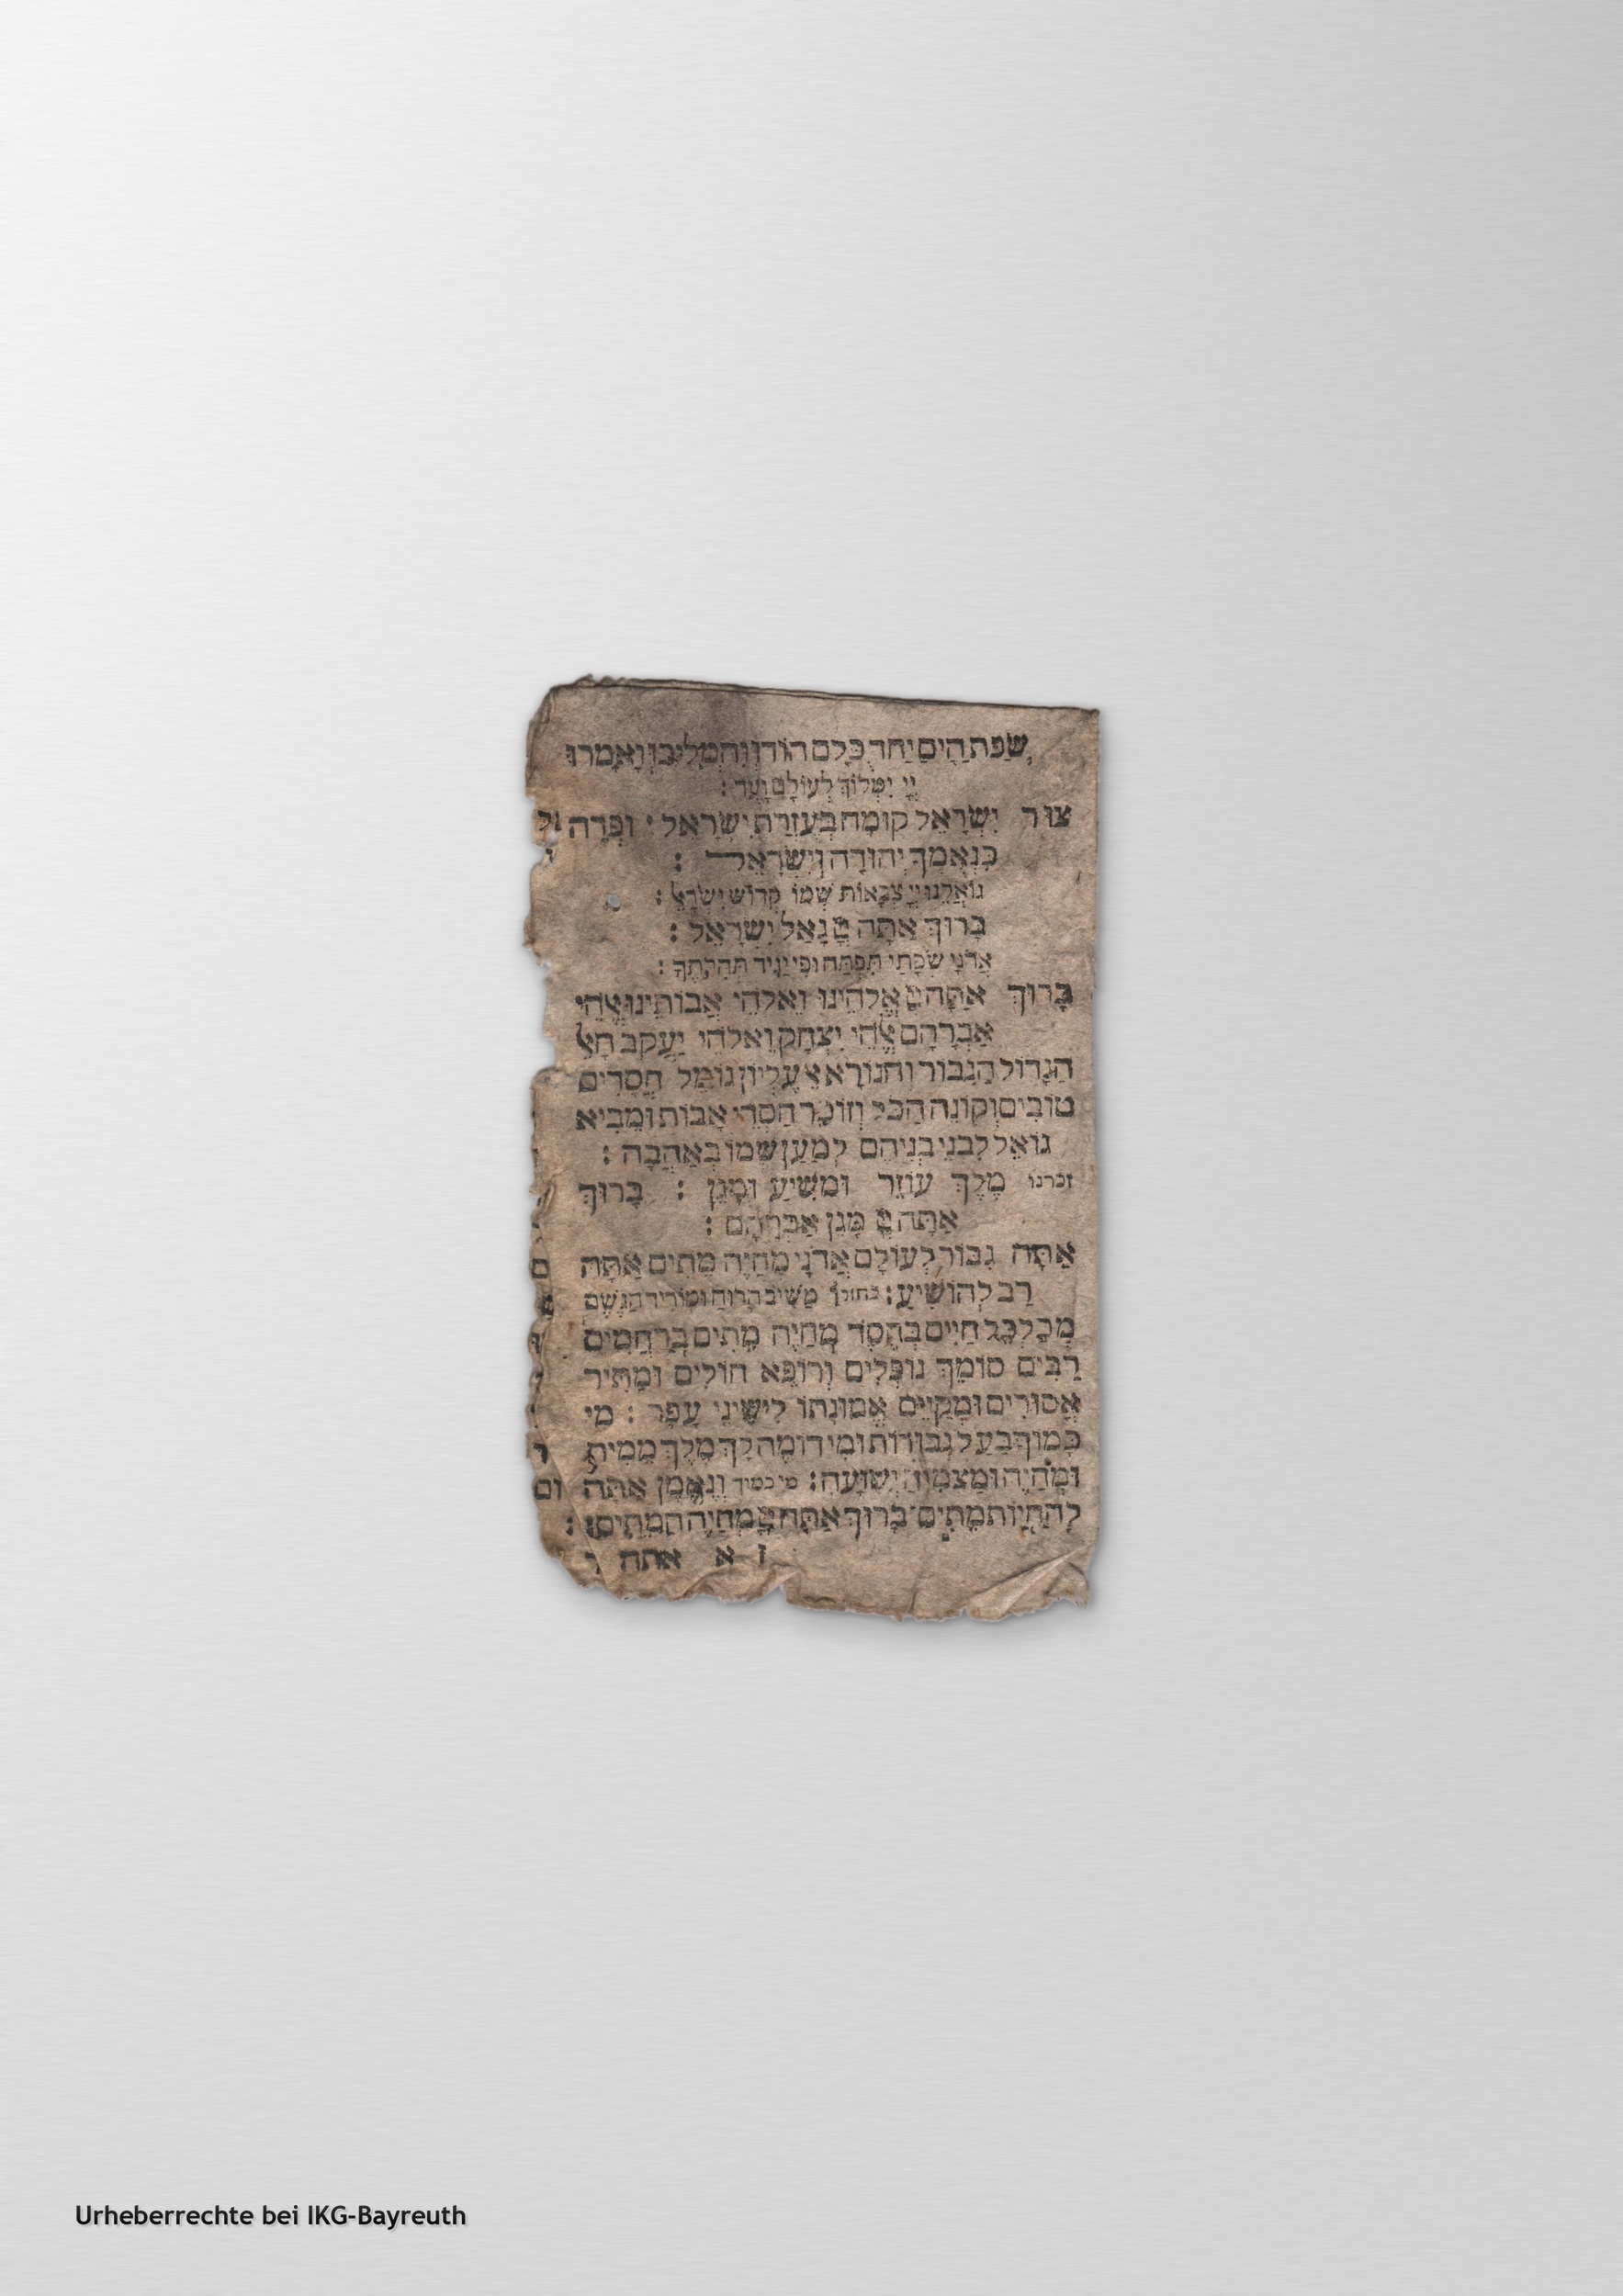 שְׂפַת הַיָּם יַחַד כֻּלָּם הוֹדוּ וְהִמְלִיכוּ וְאָמְרוּ
יְיָ יִמְלוֹךְ לְעוֹלָם וָעֶד :
צוּר יִשְׂרָאֵל קוּמָה בְּעֶזְרַת יִשְׂרָאֵל · וּפְדֵה
כִנְאֻמֶךָ יְהוּדָה וְיִשְׂרָאֵל :
גּוֹאֲלֵנוּ יְיָ צְבָאוֹת שְׁמוֹ קְדוֹשׁ יִשְׂרָאֵל :
בָּרוּךְ אַתָּה יְיָ גָּאַל יִשְׂרָאֵל :
אֲדֹנָי שְׂפָתַי תִּפְתָּח וּפִי יַגִּיד תְּהִלָּתֶךָ :
בָּרוּךְ אַתָּה יְיָ אֱלֹהֵינוּ וֵאלֹהֵי אֲבוֹתֵינוּ אֱלֹהֵי
אַבְרָהָם אֱלֹהֵי יִצְחָק וֵאלֹהֵי יַעֲקֹב הָאֵל
הַגָּדוֹל הַגִּבּוֹר וְהַנּוֹרָא אֵל עֶלְיוֹן גּוֹמֵל חֲסָדִים
טוֹבִים וְקוֹנֵה הַכֹּל וְזוֹכֵר חַסְדֵי אָבוֹת וּמֵבִיא
גוֹאֵל לִבְנֵי בְנֵיהֶם לְמַעַן שְׁמוֹ בְּאַהֲבָה :
זכרנו מֶלֶךְ עוֹזֵר וּמוֹשִׁיעַ וּמָגֵן : בָּרוּךְ
אַתָּה יְיָ מָגֵן אַבְרָהָם :
אַתָּה גִבּוֹר לְעוֹלָם אֲדֹנָי מְחַיֵּה מֵתִים אַתָּה
רַב לְהוֹשִׁיעַ : מַשִּׁיב הָרוּחַ וּמוֹרִיד הַגֶּשֶׁם
מְכַלְכֵּל חַיִּים בְּחֶסֶד מְחַיֶּה מֵתִים בְּרַחֲמִים
רַבִּים סוֹמֵךְ נוֹפְלִים וְרוֹפֵא חוֹלִים וּמַתִּיר
אֲסוּרִים וּמְקַיֵּים אֱמוּנָתוֹ לִישֵׁינֵי עָפָר : מִי
כָמוֹךָ בַּעַל גְּבוּרוֹת וּמִי דוֹמֶה לָּךְ מֶלֶךְ מֵמִית
וּמְחַיֶּה וּמַצְמִיחַ יְשׁוּעָה : מי כמוך וְנֶאֱמָן אַתָּה
לְהַחֲיוֹת מֵתִים בָּרוּךְ אַתָּה יְיָ מְחַיֵּה הַמֵּתִים :
אתה
Urheberrechte bei IKG-Bayreuth